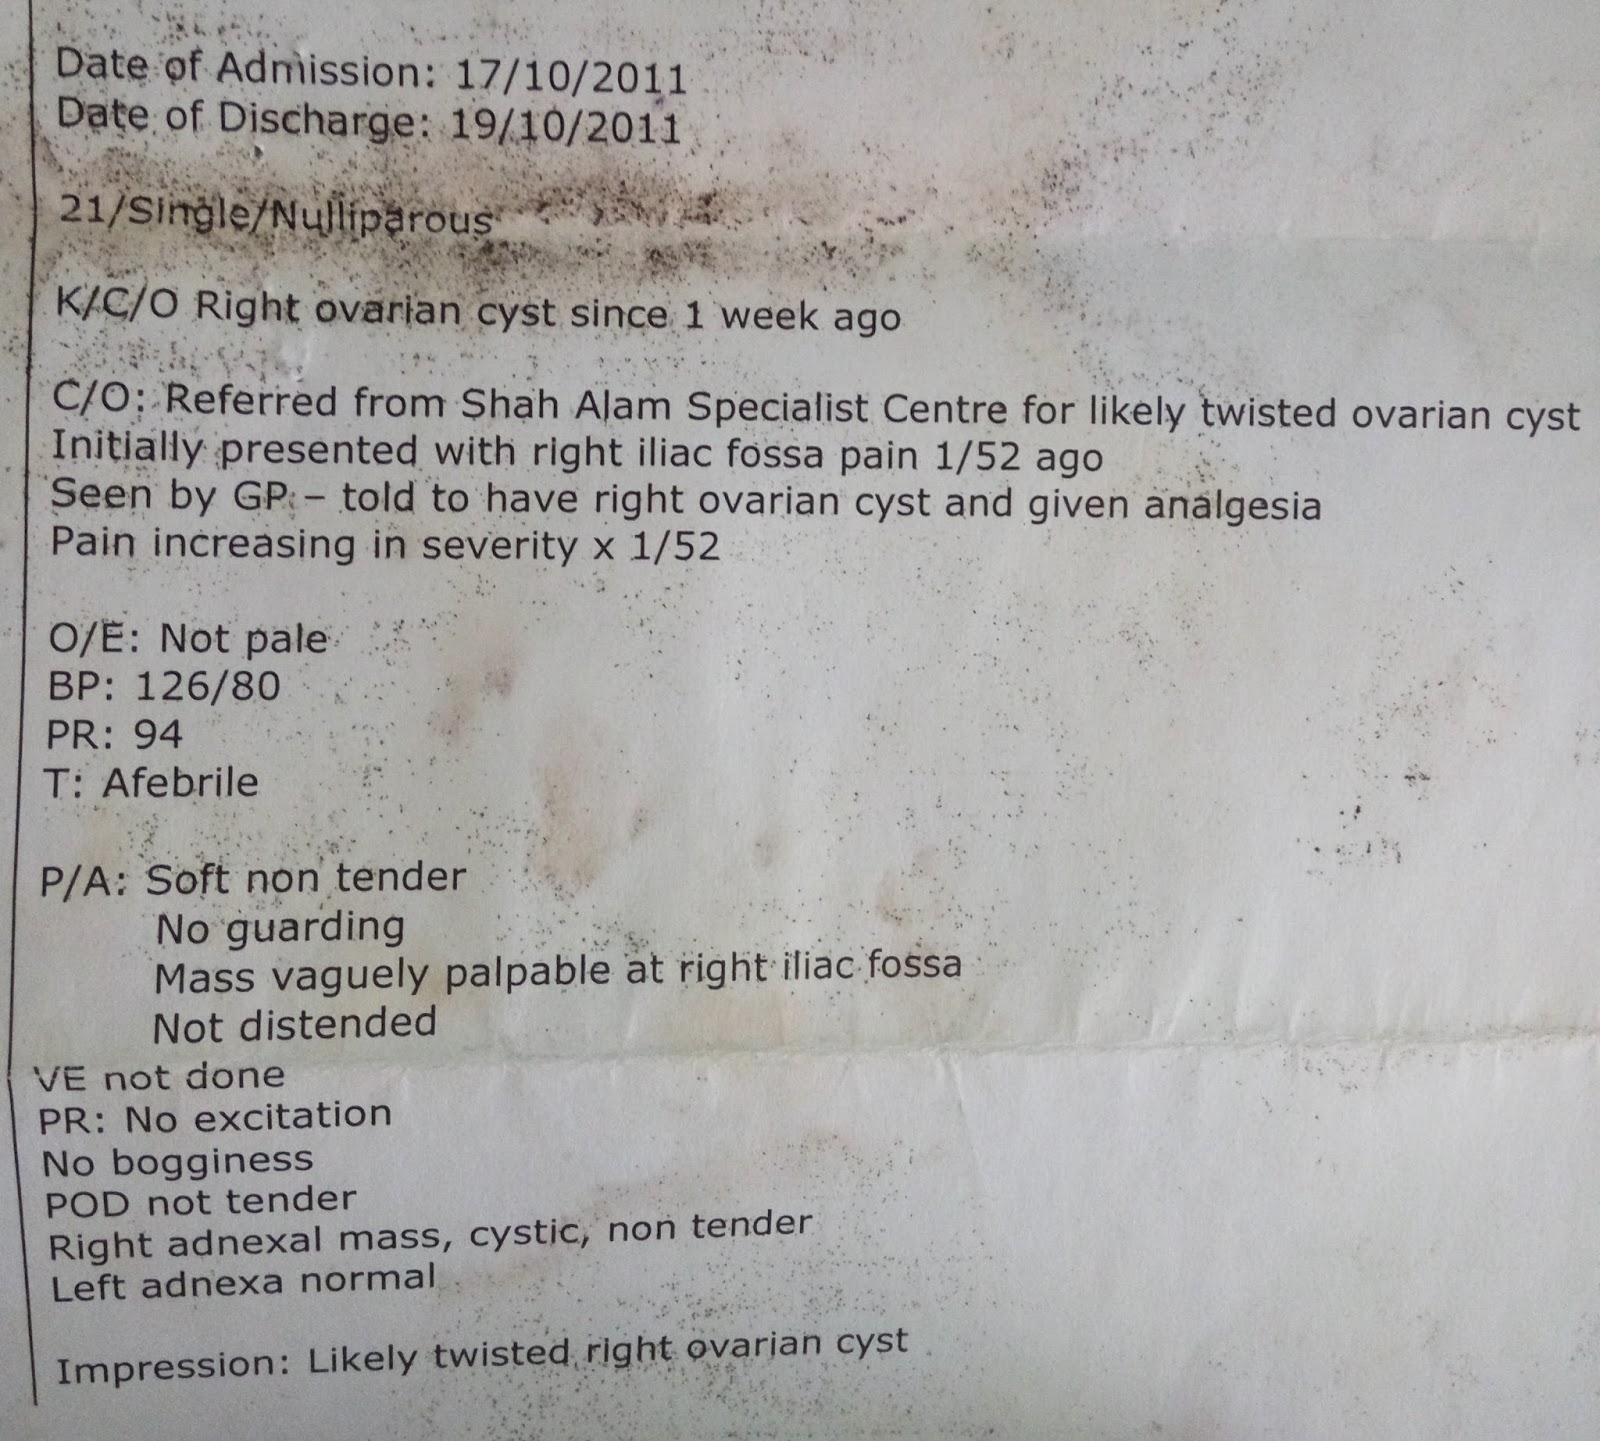 Date of Admission: 17/10/2011
Date of Discharge: 19/10/2011
21/Single/Nulliparous
K/C/O Right ovarian cyst since 1 week ago
C/O: Referred from Shah Alam Specialist Centre for likely twisted ovarian cyst
Initially presented with right iliac fossa pain 1/52 ago
Seen by GP – told to have right ovarian cyst and given analgesia
Pain increasing in severity x 1/52
O/E: Not pale
BP: 126/80
PR: 94
T: Afebrile
P/A: Soft non tender
No guarding
Mass vaguely palpable at right iliac fossa
Not distended
VE not done
PR: No excitation
No bogginess
POD not tender
Right adnexal mass, cystic, non tender
Left adnexa normal
Impression: Likely twisted right ovarian cyst